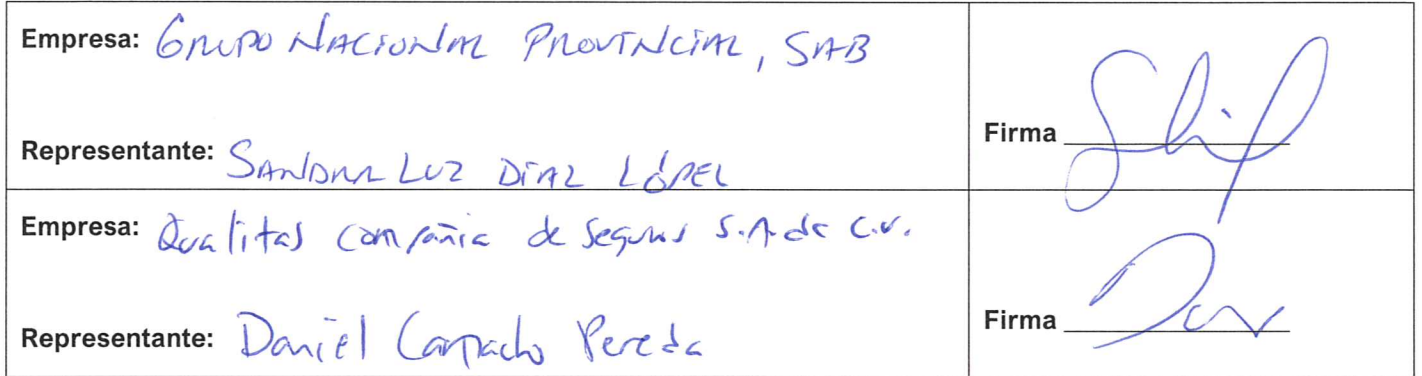 Empresa: GRUPO NACIONAL PROVINCIAL, SAB
Representante: SANDRA LUZ DÍAZ LÓPEZ
Firma
Empresa: Qualitas compañia de seguros S.A. de C.V.
Representante: Daniel Camacho Pereda
Firma